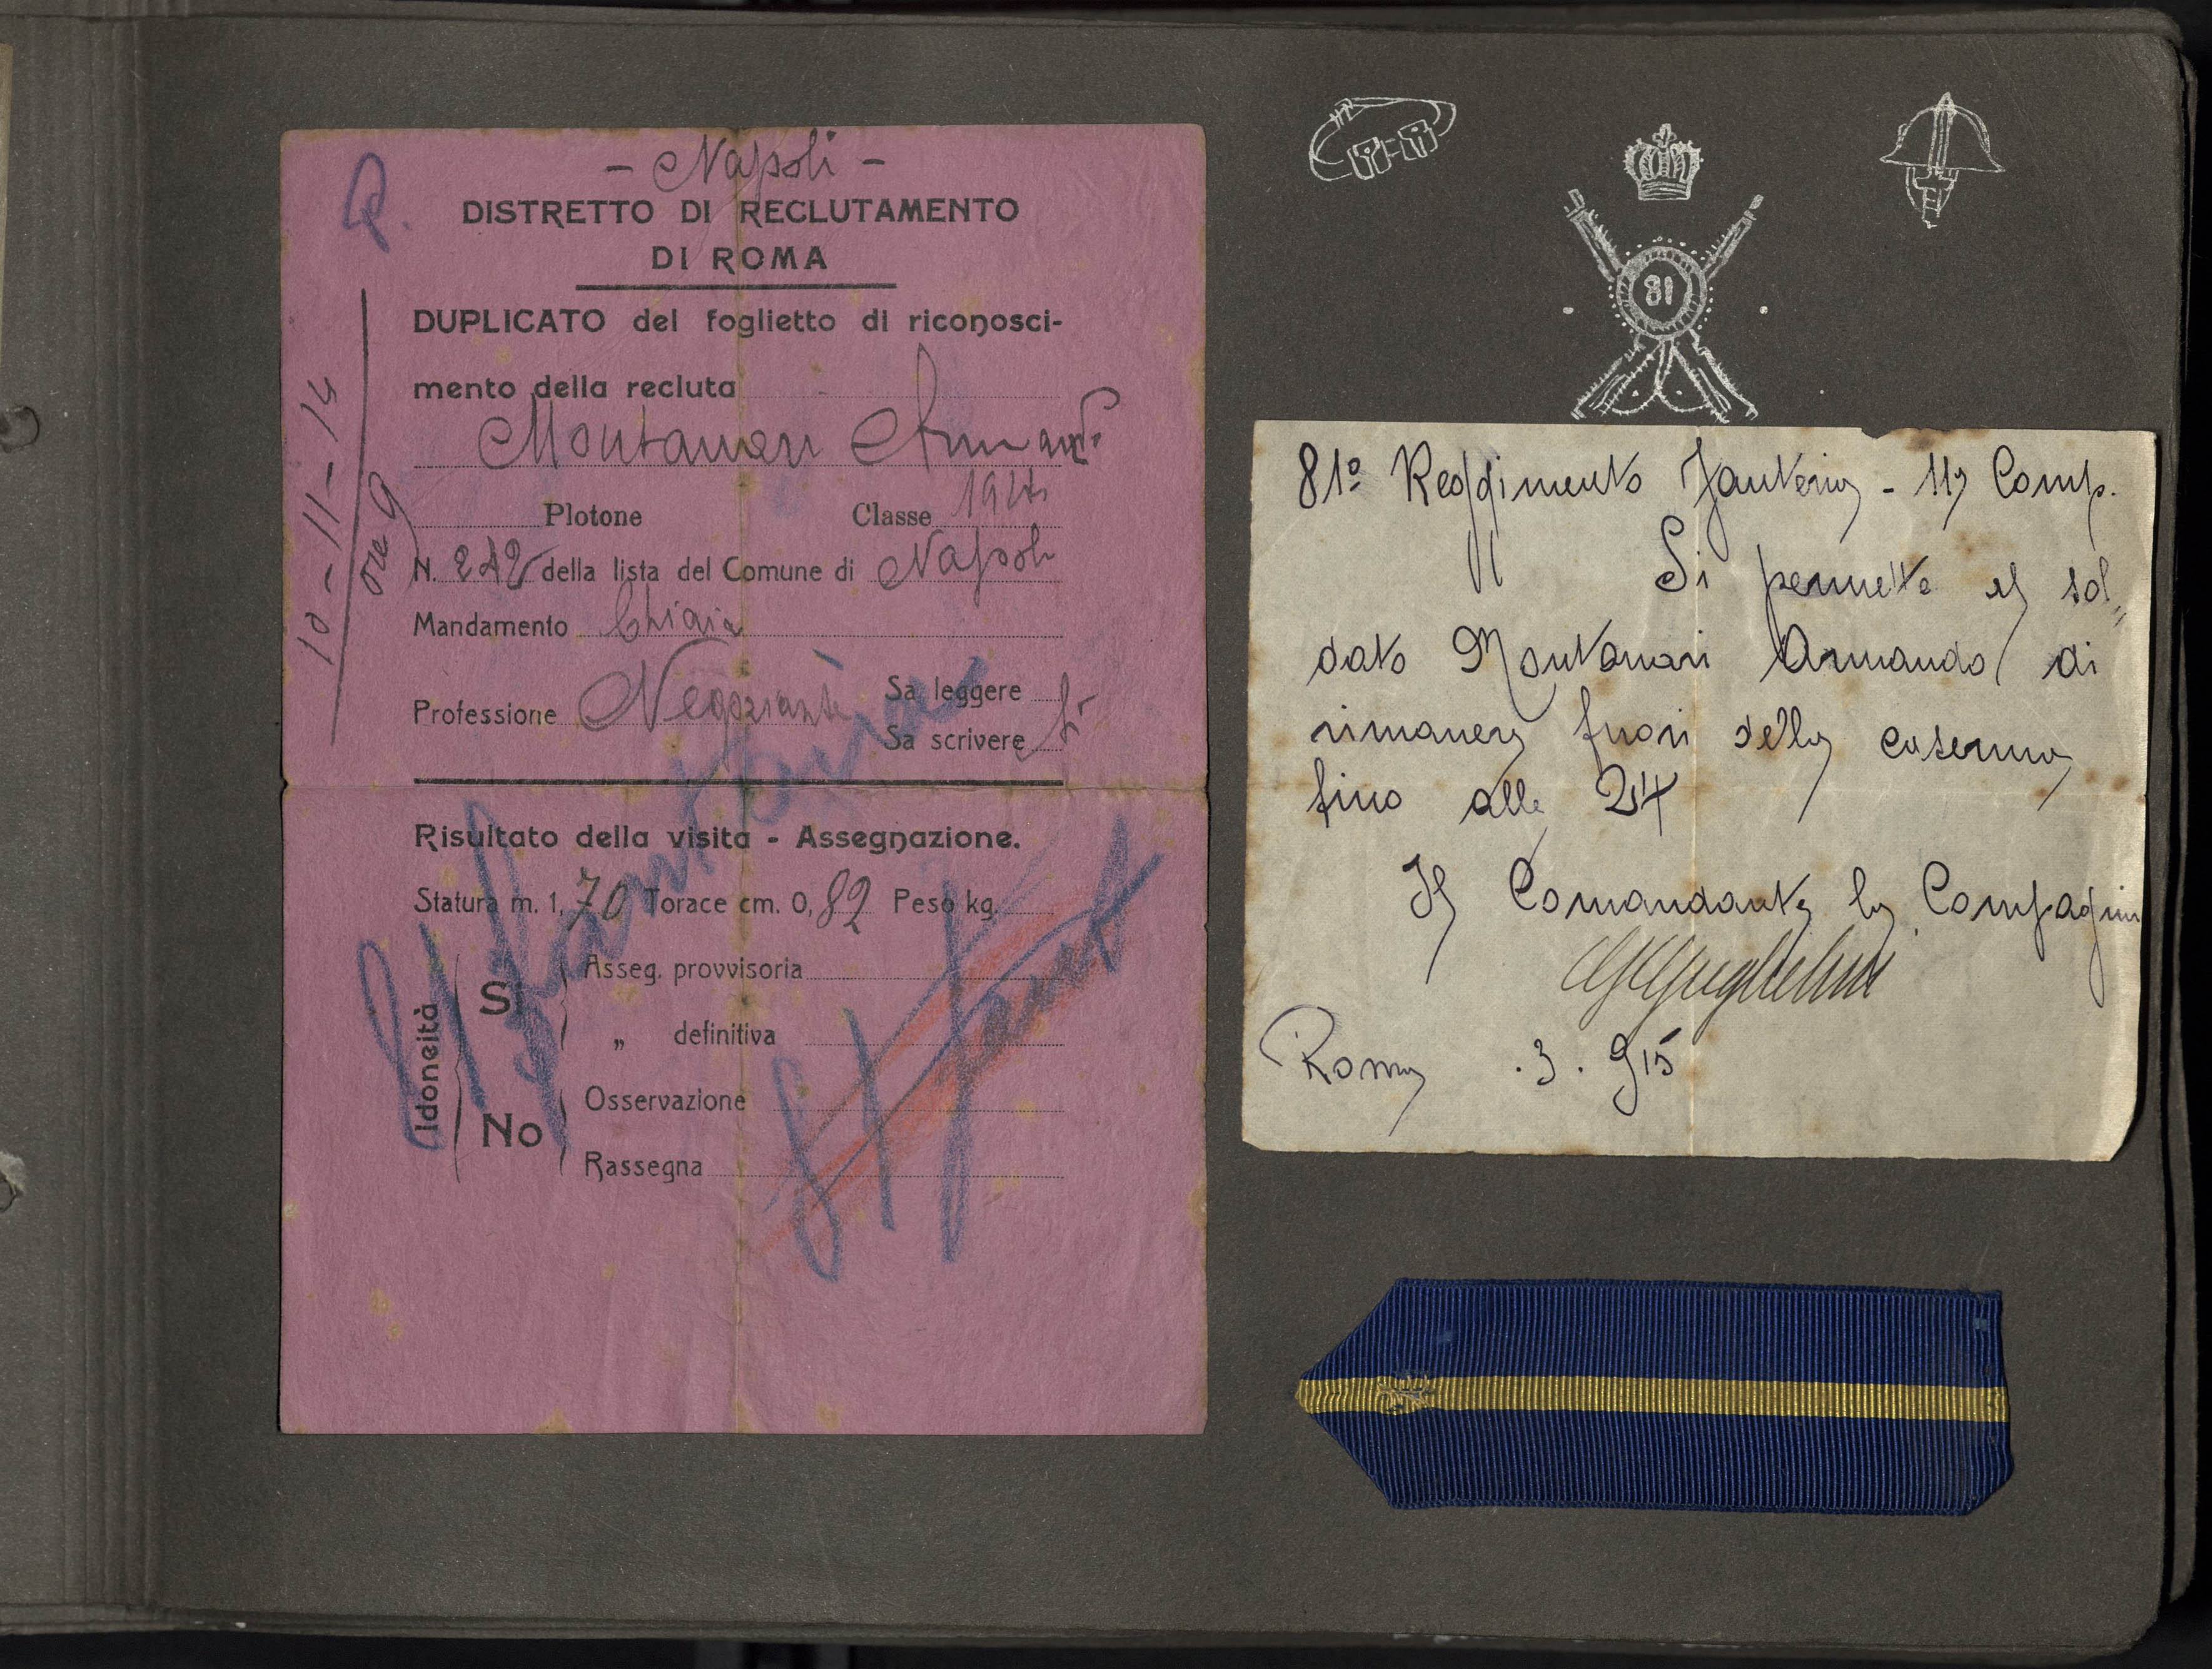 - Napoli -
DISTRETTO DI RECLUTAMENTO
DI ROMA
DUPLICATO del foglietto di riconosci-
mento della recluta
Montanari Armando
Plotone Classe
N. 242 della lista del Comune di Napoli
Mandamento Chiaia
Professione Negoziante Sa leggere
Sa scrivere Si
10-11-14
ore 9
Risultato della visita - Assegnazione.
Statura m. 1,70 Torace cm. 0,82 Peso kg.
Idoneità
Si
No
Asseg. provvisoria
„ definitiva
Osservazione
Rassegna
Fanteria
81 Fant
81
81º Reggimento Fanteria - 11ª Comp.
Si permette al sol„
dato Montanari Armando di
rimanere fuori della caserma
fino alle 24
Il Comandante la Compagnia
Roma .3.915